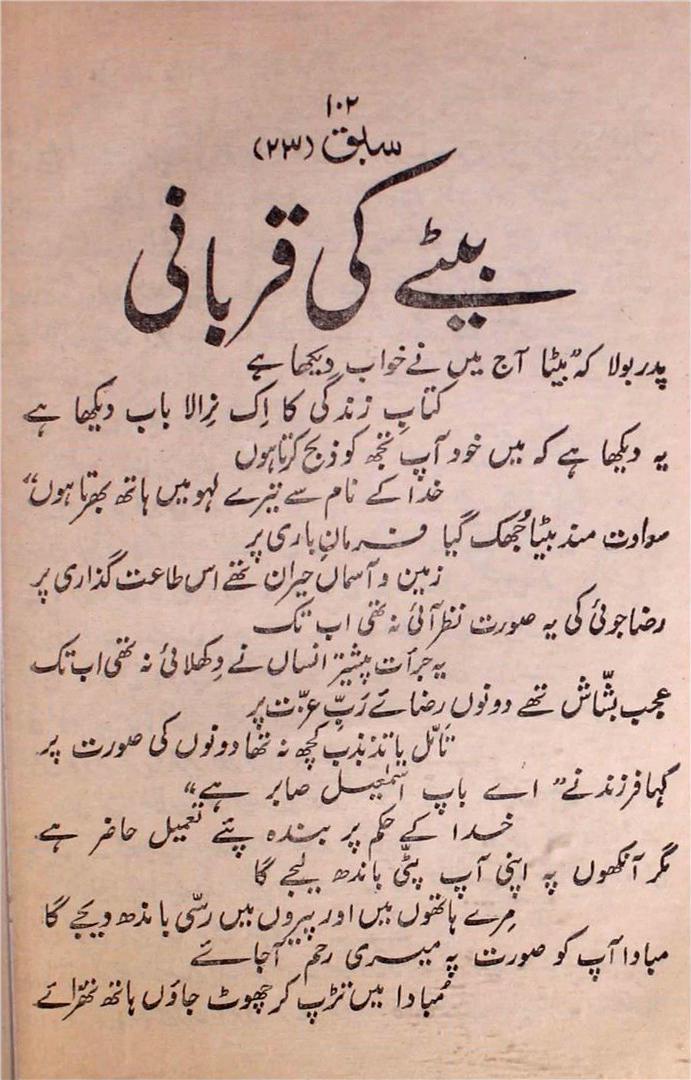 ۱۰۲
سبق (۲۳)
بیٹے کی قربانی
پدر بولا کہ ”بیٹا آج میں نے خواب دیکھا ہے
کتابِ زندگی کا اِک نِرالا باب دیکھا ہے
یہ دیکھا ہے کہ میں خود آپ تجھ کو ذبح کرتا ہوں
خدا کے نام سے تیرے لہو میں ہاتھ بھرتا ہوں“
سعادت مند بیٹا جُھک گیا فرمانِ باری پر
زمین و آسماں حیران تھے اس طاعت گذاری پر
رضا جوئی کی یہ صورت نظر آئی نہ تھی اب تک
یہ جرأت پیشتر انساں نے دِکھلائی نہ تھی اب تک
عجب بشّاش تھے دونوں رضائے رَبِّ عزّت پر
تأمّل یا تذبذب کچھ نہ تھا دونوں کی صورت پر
کہا فرزند نے ”اے باپ اسمٰعیل صابر ہے“
خدا کے حکم پر بندہ پئے تعمیل حاضر ہے
مگر آنکھوں پہ اپنی آپ پٹّی باندھ لیجے گا
مِرے ہاتھوں میں اور پیروں میں رسّی باندھ دیجے گا
مبادا آپ کو صورت پہ میری رحم آجائے
مُبادا میں تڑپ کر چھوٹ جاؤں ہاتھ تھرّائے